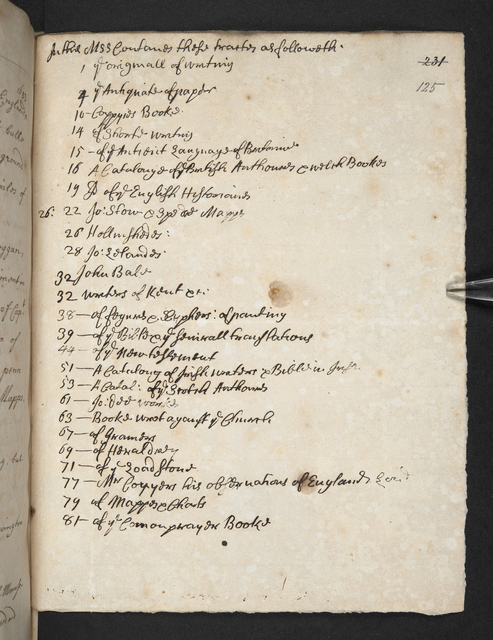 In this MSS Contanes these tractes as followeth:
231
1 yͤ originall of writing
125
4 yͤ Antiquate of paper
10 Coppyies Booke
14 of Shorte writing
15 - of yͤ Antient Language of Britaine
16 A Catalouge of British Authoures & welch Bookes
19 D of yͤ English Historians
26: 22 Jo: Stow & Speede Mapps
26 Hollinshedes:
28 Jo: Lelandes:
32 John Bale
32 writers of Kent &c:
38 - of Cyphers: of printing
39 - of yͤ Bible & yͤ Generall translations
44 - of yͤ New testement
51 - A Cataloug of Irish writers & Bible in Irish
53 - A Catal: of yͤ Scotish Authoures
61 - Jo: Dee workes
63 - Booke wrot against yͤ Church
67 - of Gramers
69 - of Heraldrey
71 - of yͤ Loadstone
77 - Mr Coppyes his observations of England
79 of Mappes & Charts
81 - of yͤ Comonprayer Booke